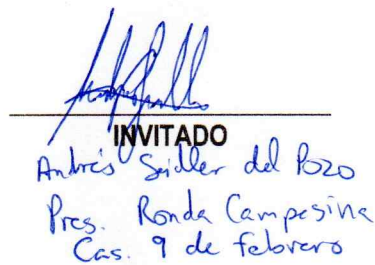 INVITADO
Andrés Seidler del Pozo
Pres. Ronda Campesina
Cas. 9 de febrero